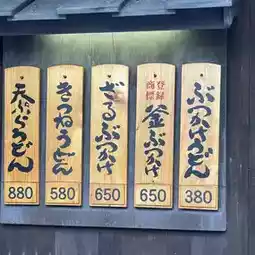 ぶっかけうどん
380
登録
商標
釜ぶっかけ
650
ざるぶっかけ
650
きつねうどん
580
天ぷらうどん
880